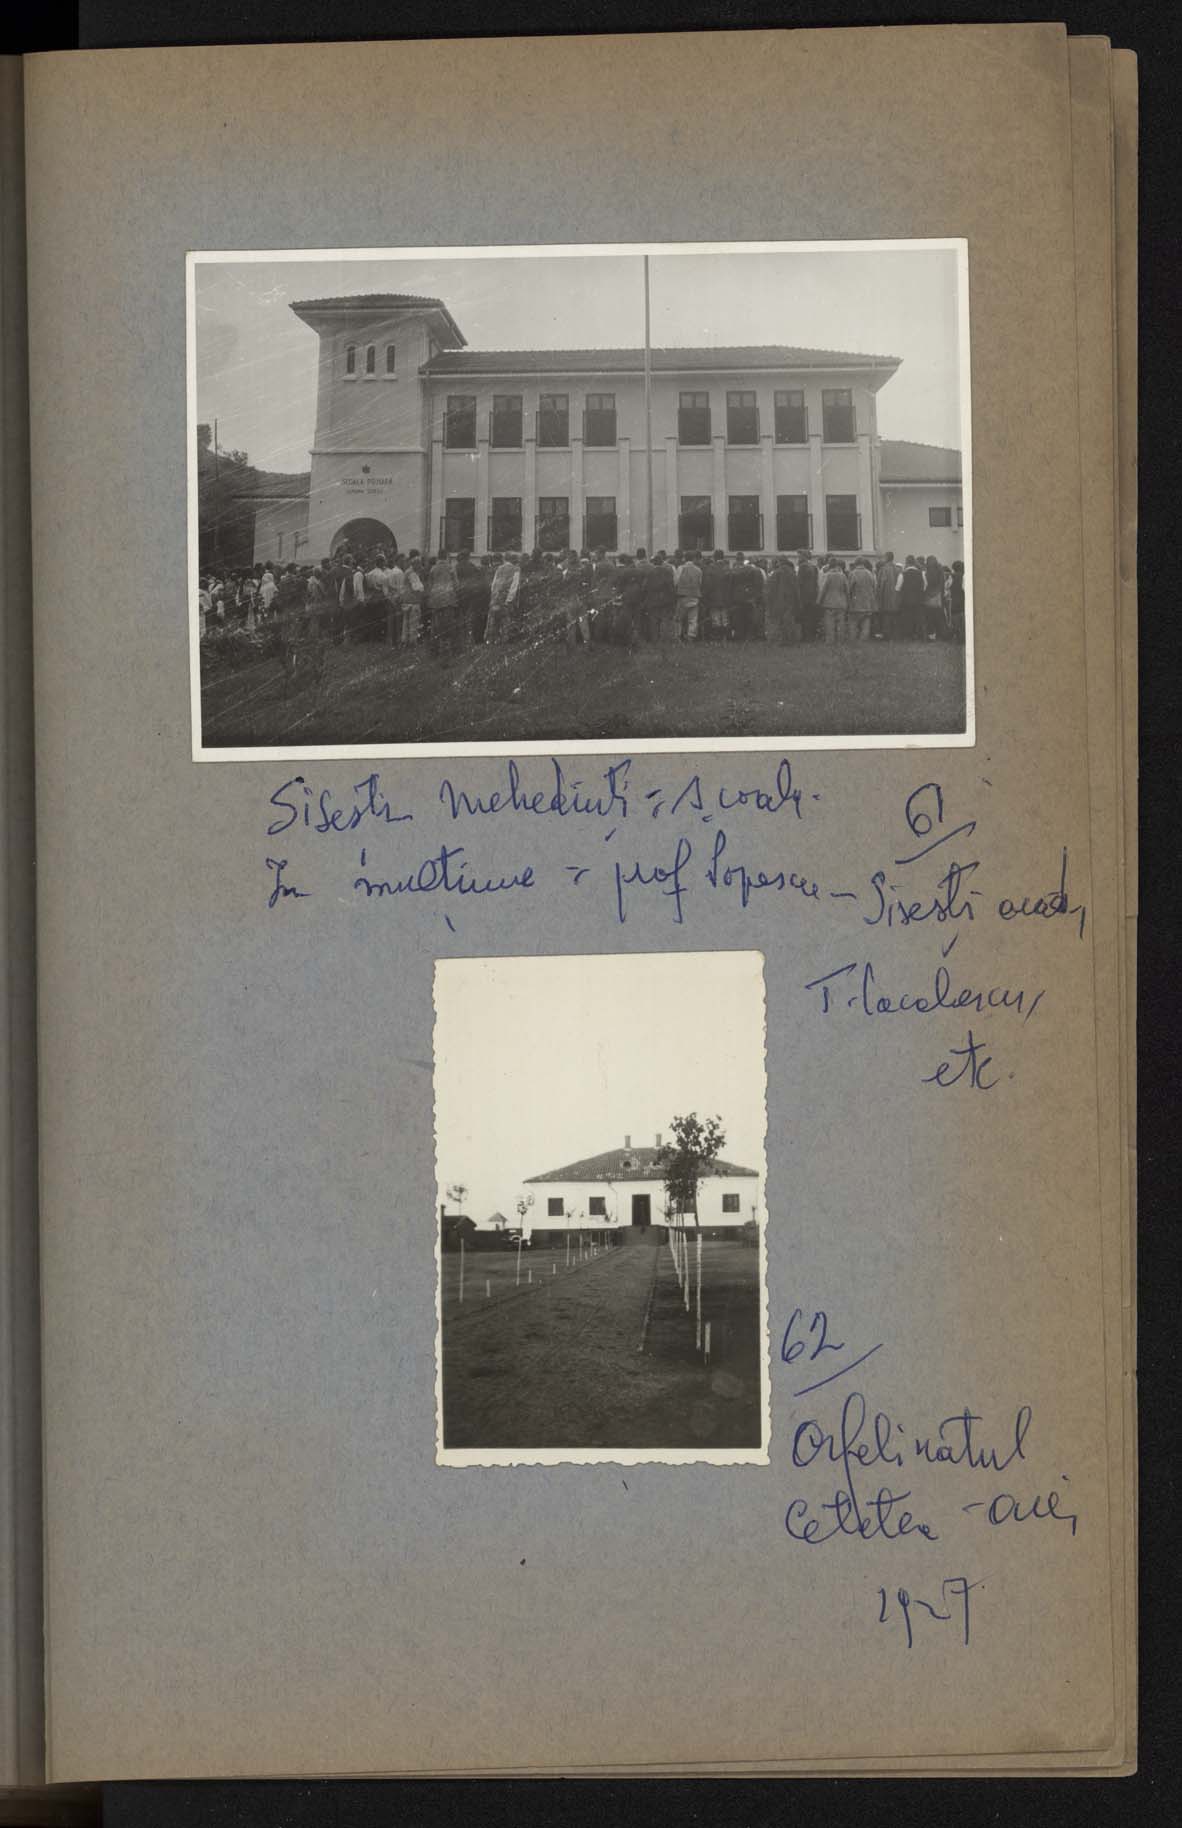 ȘCOALA PRIMARĂ
Sisesti Mehedinți = școala.
61
In mulțime = prof Popescu – Sisești
T. Cocolescu,
etc.
62
Orfelinatul
Cetatea
1927